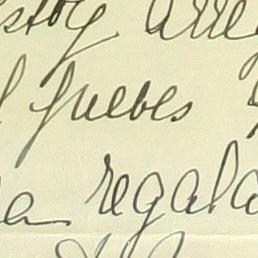 stoy arre
l juebes
a regala